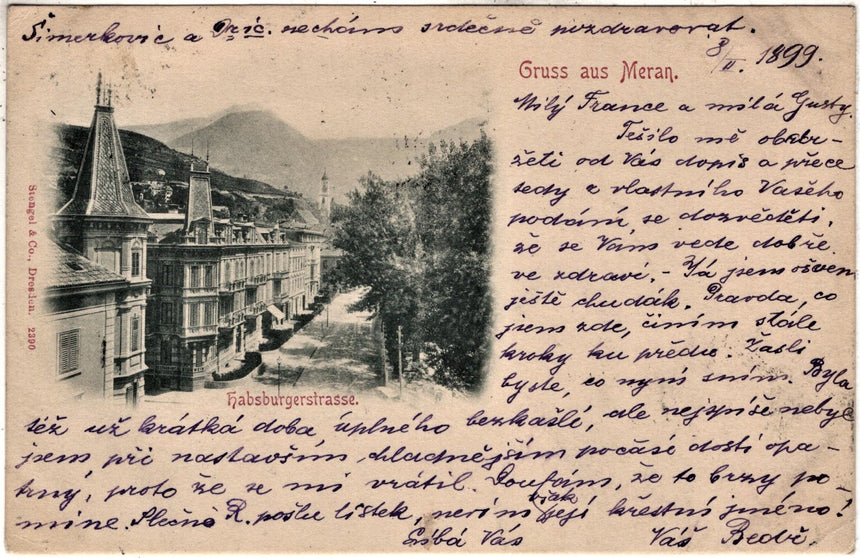 Šimerkovic a Vkić. nechám srdečně pozdravovat.
8/II. 1899.
Gruss aus Meran.
Milý France a milá Gusty.
Těšilo mě obdr-
žeti od Vás dopis a přece
tedy z vlastního Vašeho
podání, se dozvěděti,
že se Vám vede dobře
ve zdraví. - Já jsem ovšem
ještě chudák. Pravda, co
jsem zde, činím stále
kroky ku předu. Žasli
byste, co nyní sním. Byla
též už krátká doba úplného bezkašlí, ale nejspíše nebyl
jsem při nastavším chladnějším počasí dosti opa-
trný, proto že se mi vrátil. Doufám, že to brzy po-
mine. Slečně R. pošlu lístek, nevím však její křestní jméno!
Líbá Vás Váš Bedř.
Habsburgerstrasse.
Stengel & Co., Dresden. 2390